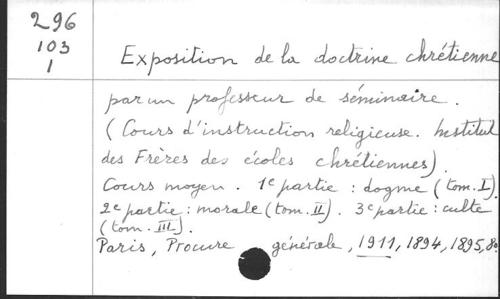 296
103
1
Exposition de la doctrine chrétienne
par un professeur de séminaire.
(Cours d'instruction religieuse. Institut
des Frères des écoles chrétiennes)
Cours moyen. 1e partie : dogme (tom. I).
2e partie : morale (tom. II). 3e partie : culte
(tom. III).
Paris, Procure générale, 1911, 1894, 1895, 8o